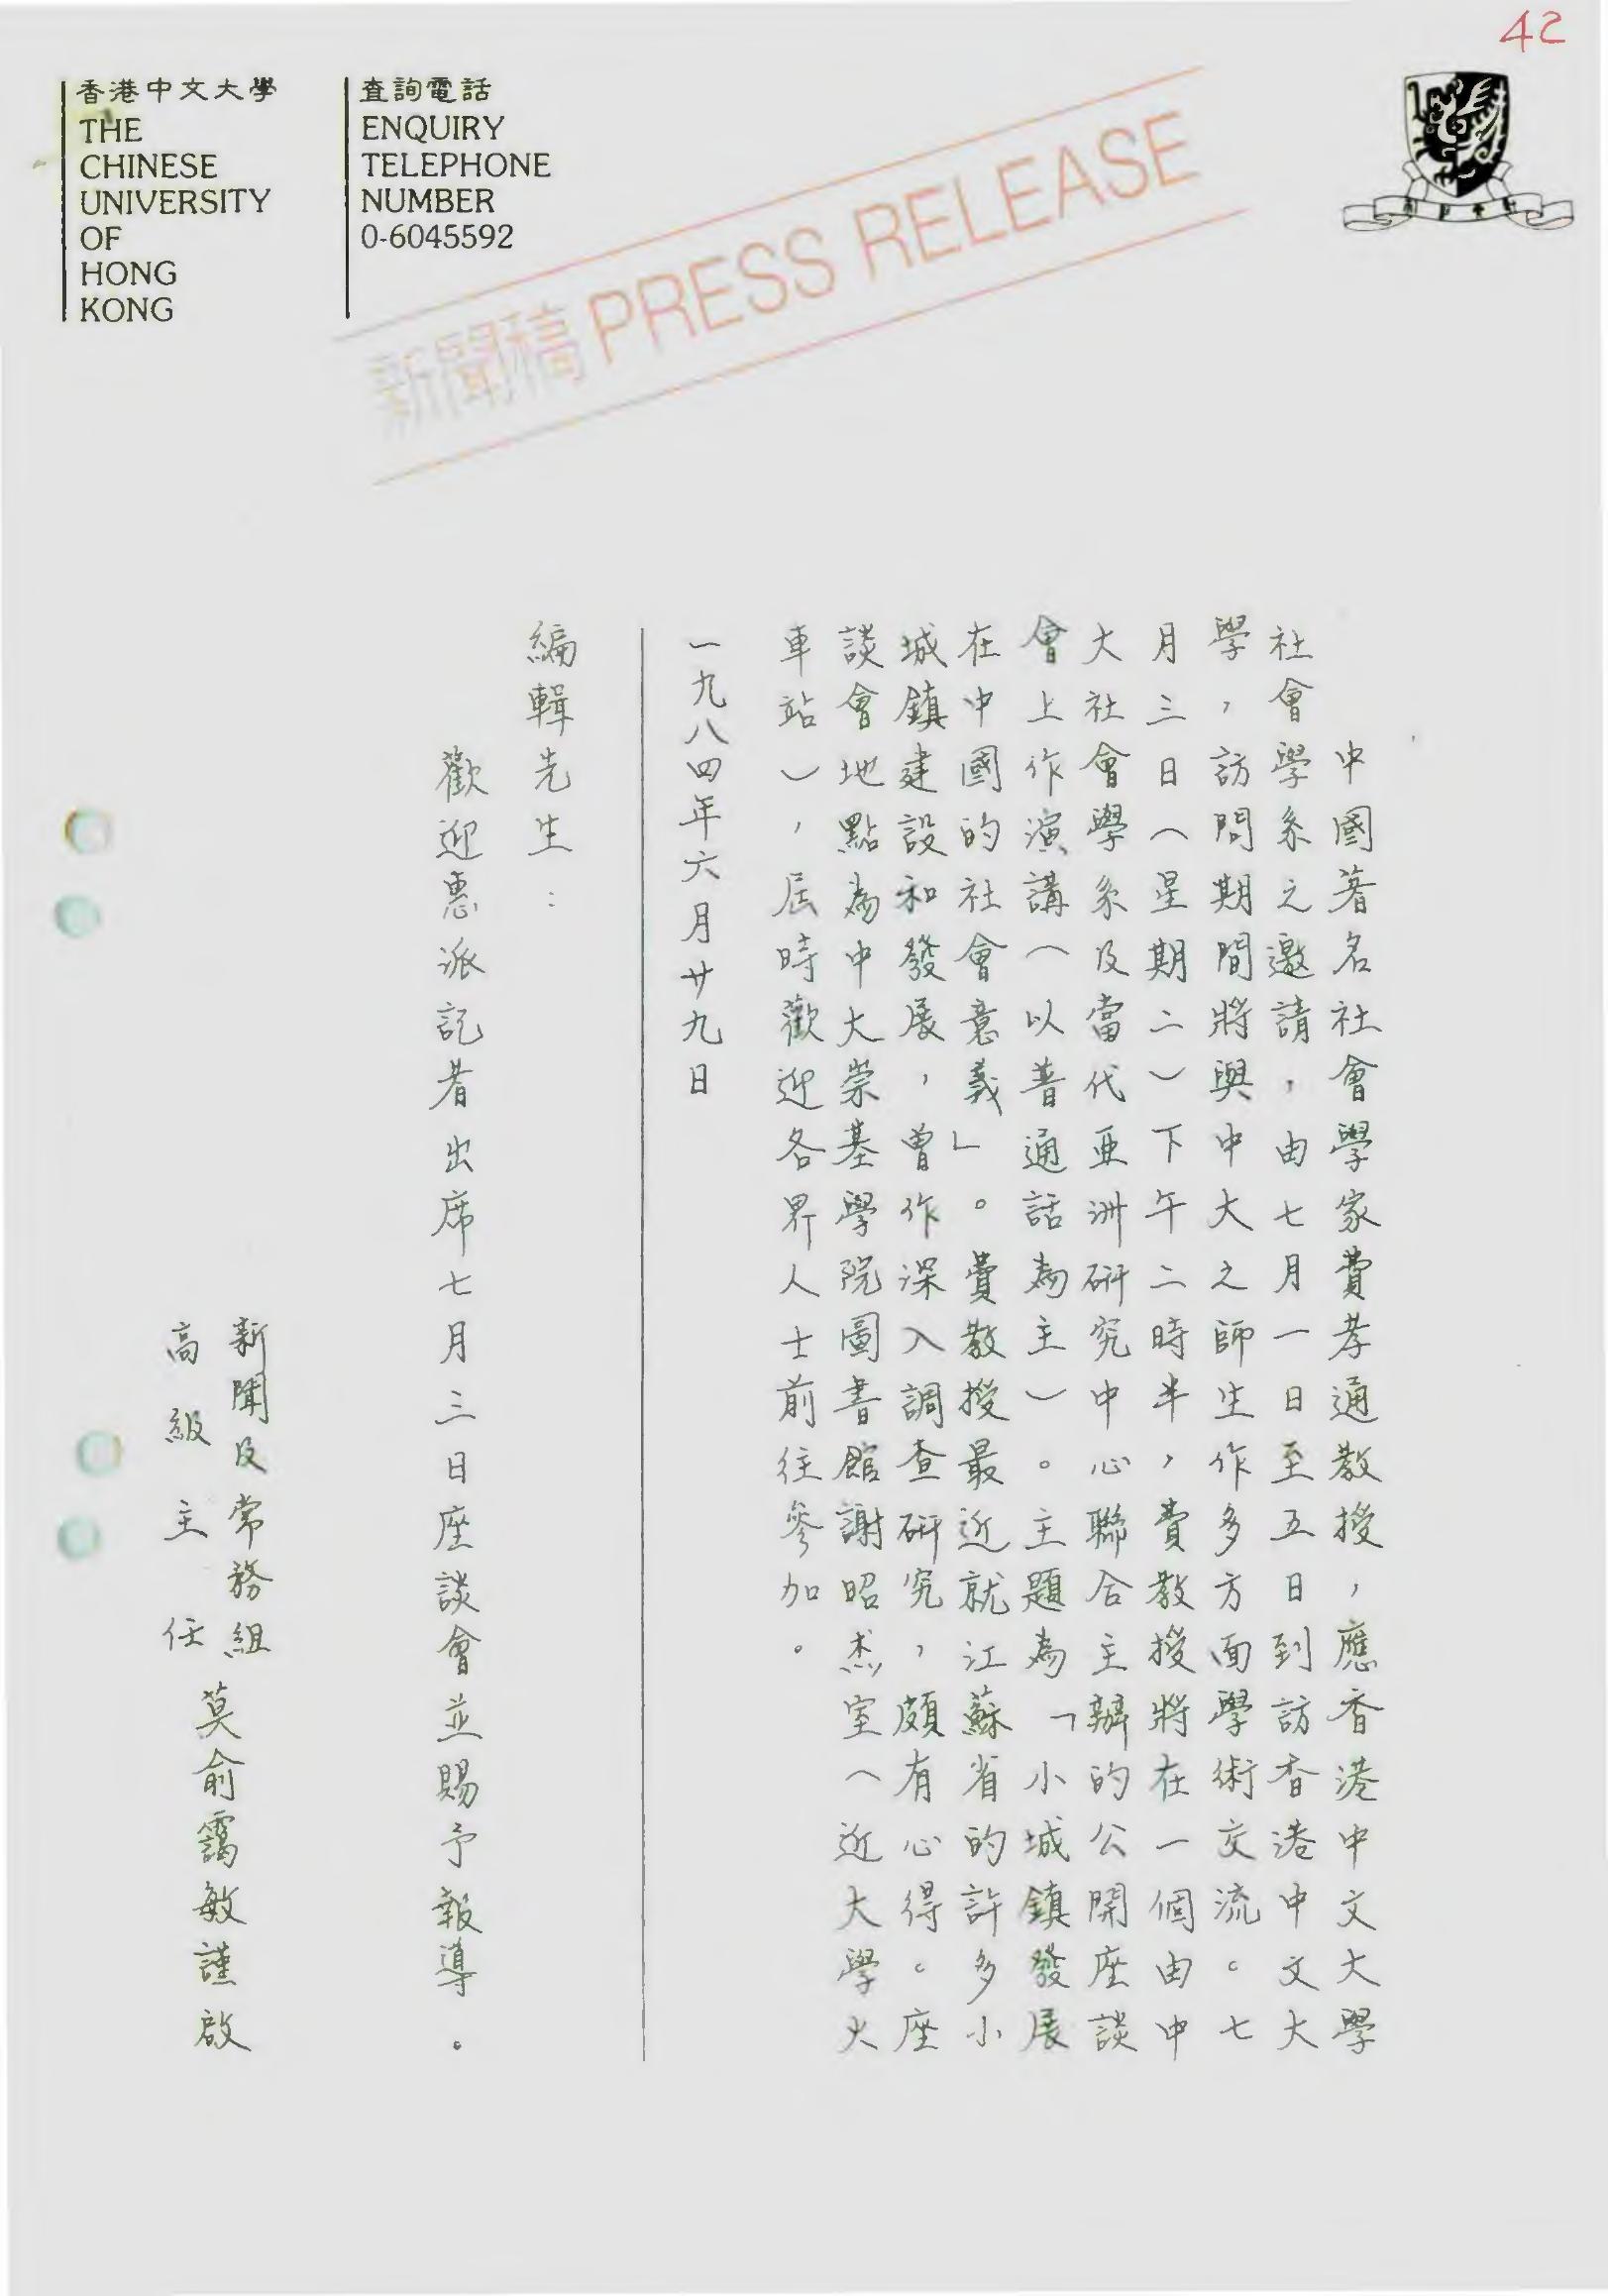 42
香港中文大學
THE
CHINESE
UNIVERSITY
OF
HONG
KONG
查詢電話
ENQUIRY
TELEPHONE
NUMBER
0-6045592
新聞稿 PRESS RELEASE
中國著名社會學家費孝通教授，應香港中文大學
社會學系之邀請，由七月一日至五日到訪香港中文大
學，訪問期間將與中大之師生作多方面學術交流。七
月三日（星期二）下午二時半，費教授將在一個由中
大社會學系及當代亞洲研究中心聯合主辦的公開座談
會上作演講（以普通話為主）。主題為「小城鎮發展
在中國的社會意義」。費教授最近就江蘇省的許多小
城鎮建設和發展，曾作深入調查研究，頗有心得。座
談會地點為中大崇基學院圖書館謝昭杰室（近大學火
車站），屆時歡迎各界人士前往參加。
一九八四年六月廿九日
編輯先生：
歡迎惠派記者出席七月三日座談會並賜予報導。
新聞及常務組
高級主任
莫俞靄敏謹啟